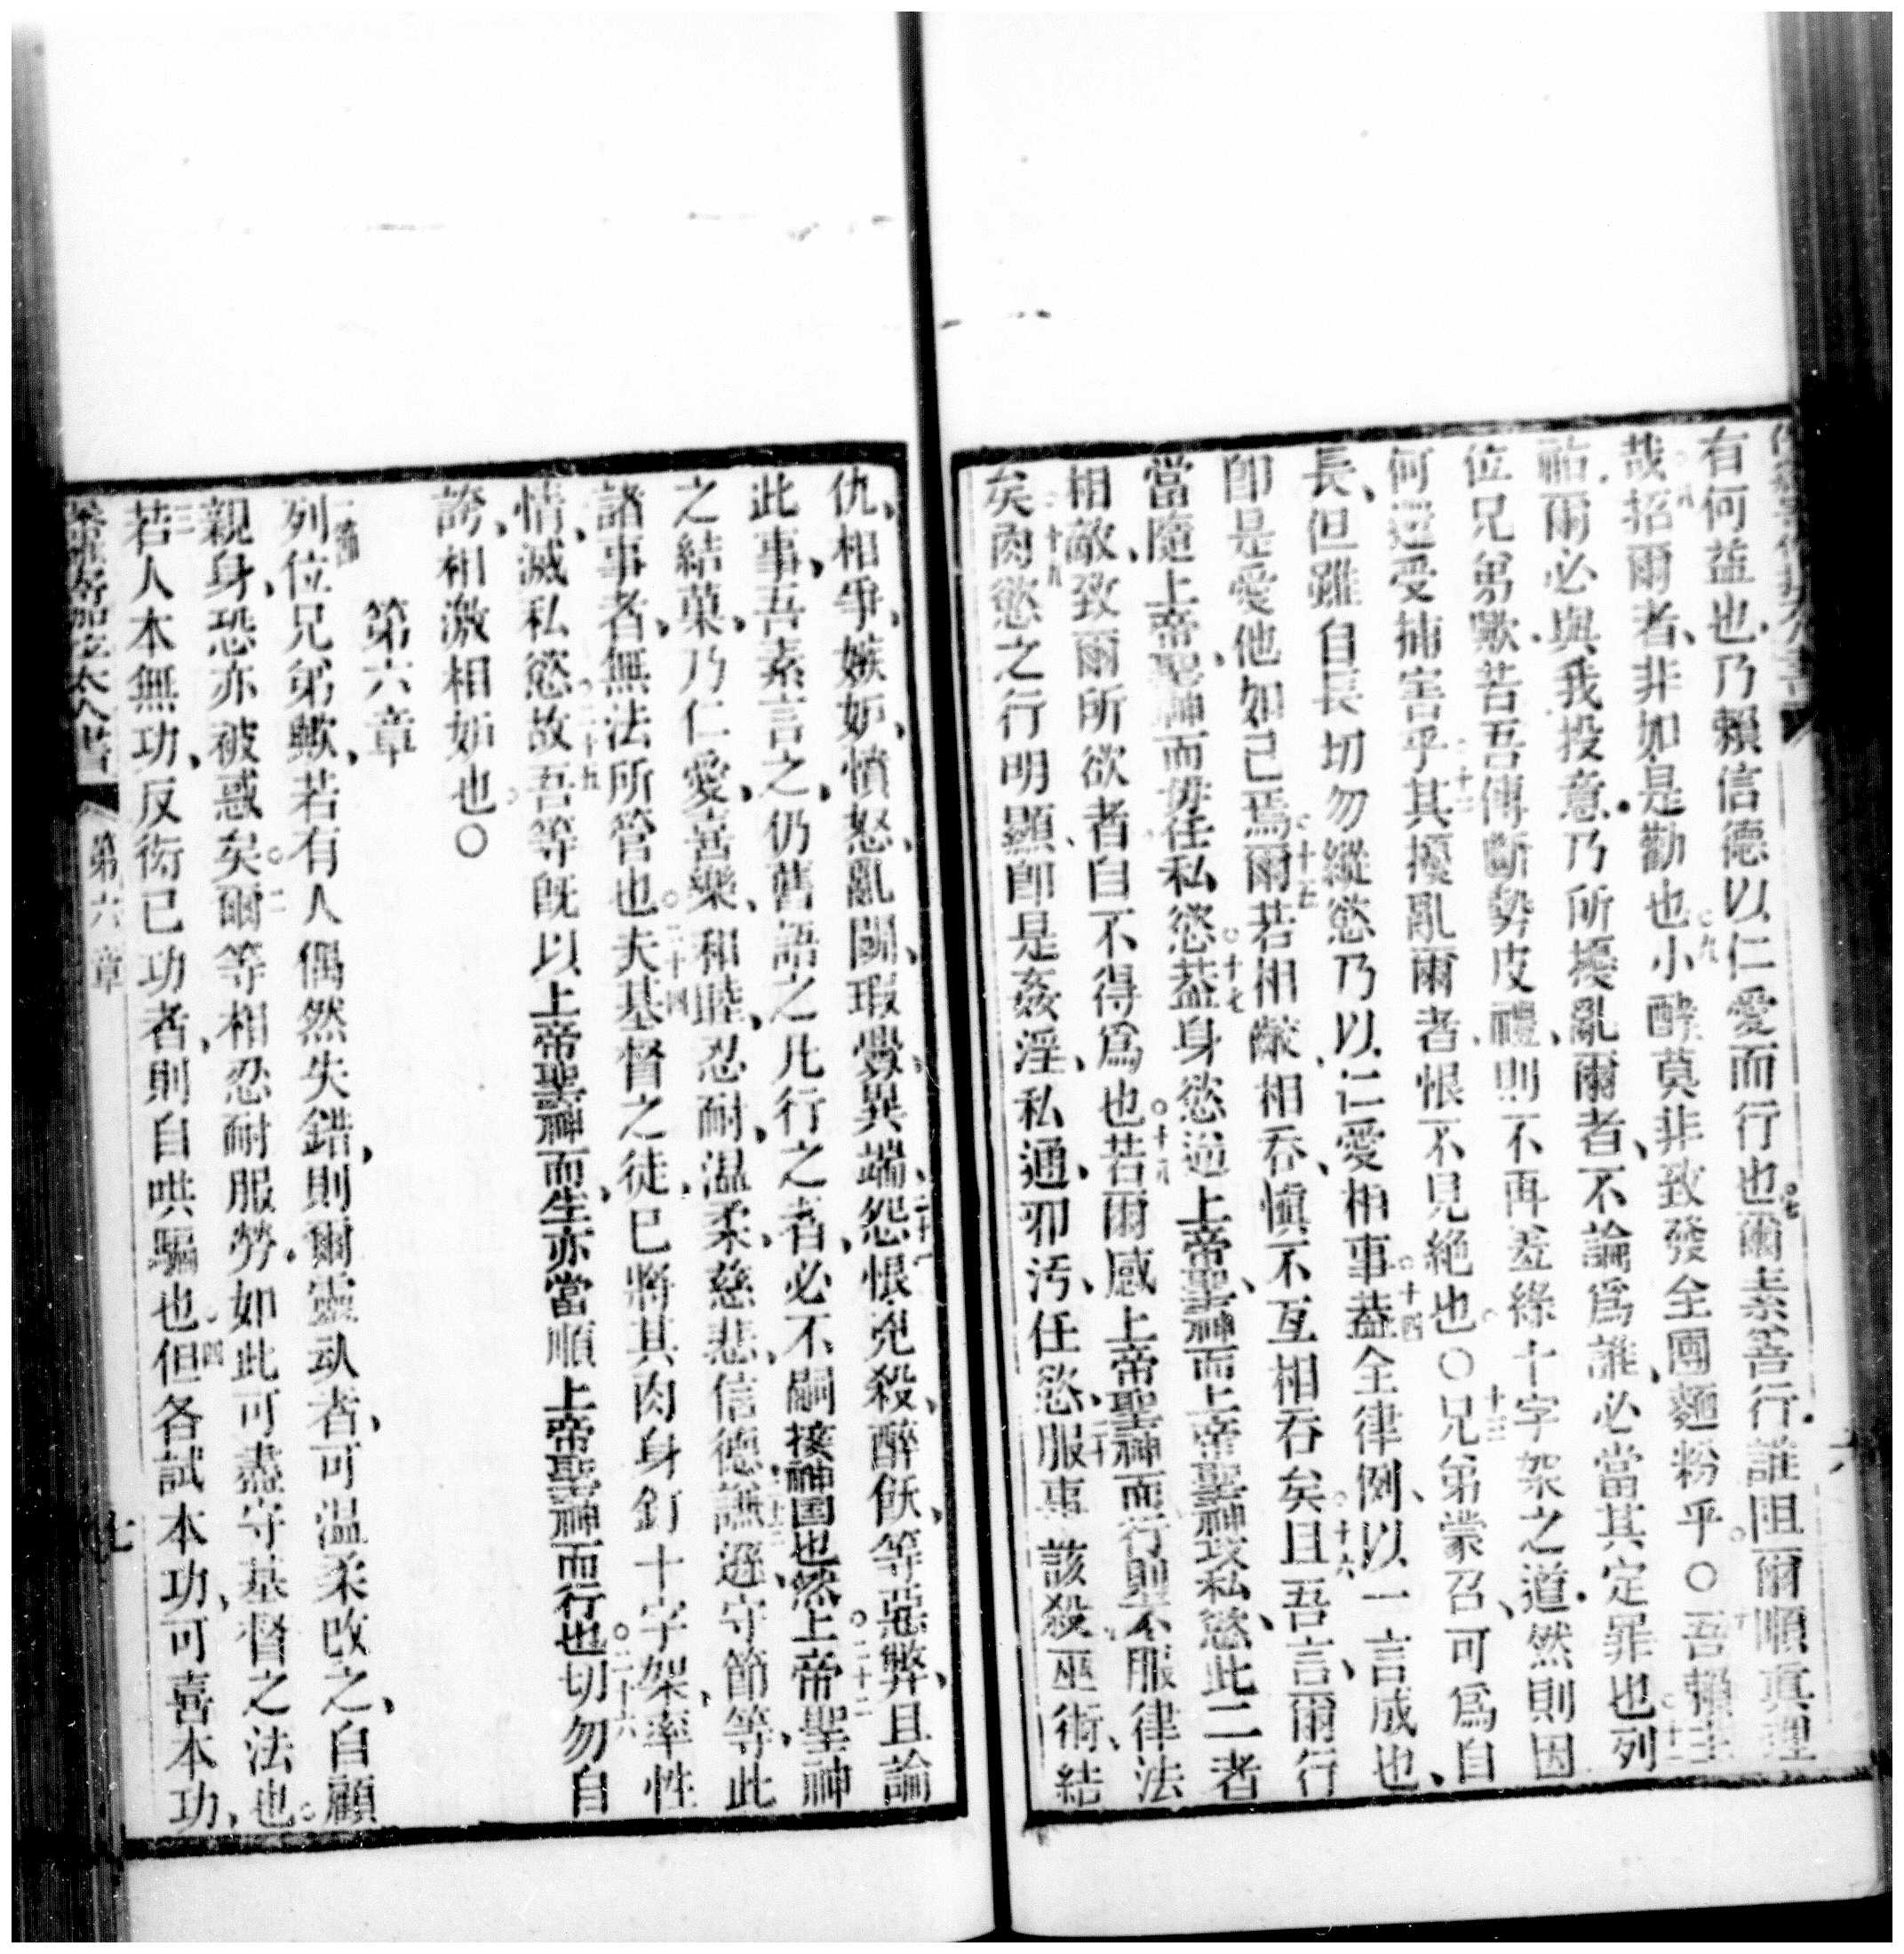 有何益也乃賴信德以仁愛而行也○七爾素善行誰阻爾順真理
哉○八招爾者非如是勸也○九小酵莫非致發全團麵粉乎○吾賴主
祐爾必與我投意乃所擾亂爾者不論為誰必當其定罪也○十一列
位兄弟歟若吾傳斷勢皮禮則不再羞緣十字架之道然則因
何逆受捕害乎○十二其擾亂爾者恨不見絕也○○十三兄弟蒙召可為自
長但雖自長切勿縱慾乃以仁愛相事○十四葢全律例以一言成也
即是愛他如己焉○十五爾若相齩相吞慎不互相吞矣○十六且吾言爾行
當隨上帝聖神而毋任私慾○十七葢身慾逆上帝聖神而上帝聖神攻私慾此二者
相敵致爾所欲者自不得為也○十八若爾感上帝聖神而行則不服律法
矣○十九肉慾之行明顯即是姦淫私通邪污任慾二十服事該殺巫術結
仇相爭嫉妒憤怒亂鬬瑕釁異端二十一怨恨兇殺醉飫等惡弊且論
此事吾素言之仍舊語之凡行之者必不嗣接神国也○二十二然上帝聖神
之結菓乃仁愛喜樂和睦忍耐温柔慈悲信德二十三謙遜守節等此
諸事者無法所管也○二十四夫基督之徒已將其肉身釘十字架率性
情滅私慾○二十五故吾等既以上帝聖神而生亦當順上帝聖神而行也○二十六切勿自
誇相激相妒也○
第六章
一節列位兄弟歟若有人偶然失錯則爾靈㺯者可温柔改之自顧
親身恐亦被惑矣○二爾等相忍耐服勞如此可盡守基督之法也○
三若人本無功反衒己功者則自哄騙也○四但各試本功可喜本功
第六章
七